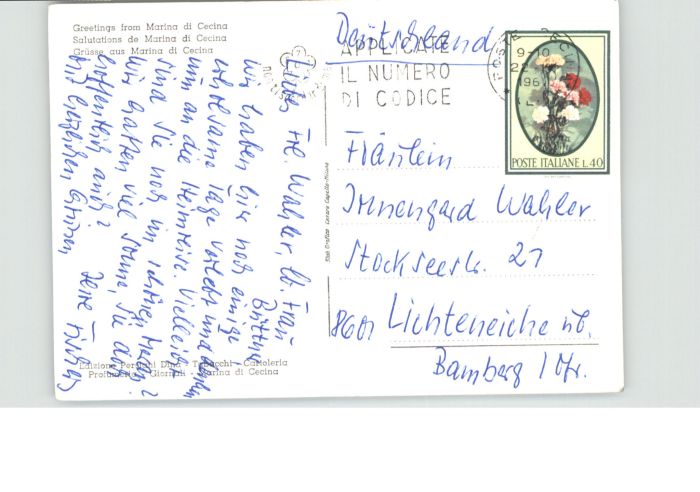 Greetings from Marina di Cecina
Salutations de Marina di Cecina
Grüsse aus Marina di Cecina
Liebes Frl. Wahler, lb. Frau
wir haben hier noch einige
Tage verlebt und
nun an die Heimreise. Vielleicht
sind Sie noch im schönen
Wir hatten viel Sonne, Sie
hoffentlich auch?
Mit herzlichen Grüßen,
Ihre
Edizione Dina - Tabacchi - Cartoleria
Profumeria - Giornali - Marina di Cecina
Cesare Capello - Milano
Deutschland
APPLICATE
IL NUMERO
DI CODICE
9-10
POSTE ITALIANE L. 40
Fräulein
Irmengard Wahler
Stockseestr. 21
8601 Lichteneiche üb.
Bamberg / Ofr.